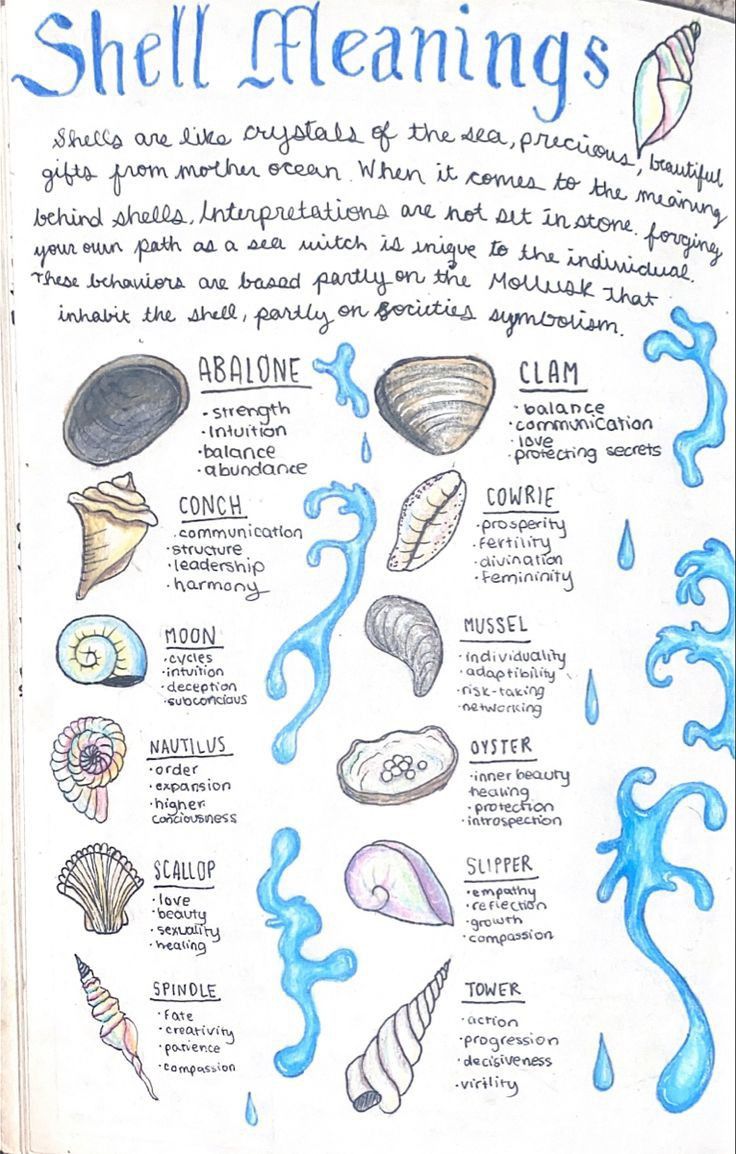 Shell Meanings
Shells are like crystals of the sea, precious, beautiful
gifts from mother ocean. When it comes to the meaning
behind shells, Interpretations are not set in stone. forging
your own path as a sea witch is uniqve to the individual.
These behaviors are based partly on the Mollusk That
inhabit the shell, partly on Societies symbolism.
ABALONE
• strength
• Intuition
• balance
• abundance
CLAM
• balance
• communication
• love
• protecting secrets
CONCH
• communication
• structure
• leadership
• harmony
COWRIE
• prosperity
• fertility
• divination
• femininity
MOON
• cycles
• intuition
• deception
• subconcious
MUSSEL
• individuality
• adaptibility
• risk-taking
• networking
NAUTILUS
• order
• expansion
• higher
conciousness
OYSTER
• inner beauty
healing
• protection
• introspection
SCALLOP
• love
• beauty
• sexuality
• healing
SLIPPER
• empathy
• reflection
• growth
• compassion
SPINDLE
• fate
• creativity
• patience
• compassion
TOWER
• action
• progression
• decisiveness
• virtlity